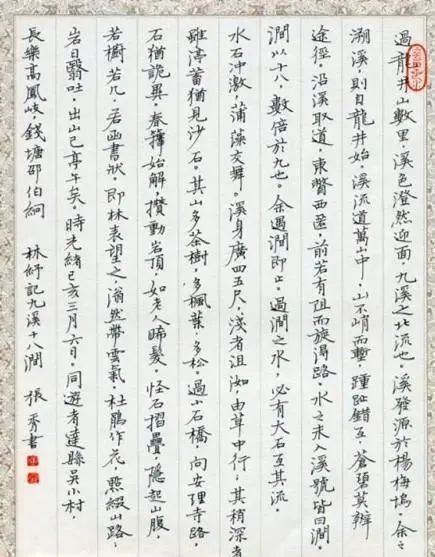 過龍井山數里，溪色澄然迎面，九溪之北流也。溪發源於楊梅塢。余之
溯溪，則自龍井始。溪流道萬山中，山不峭而塹，踵趾錯互，蒼碧莫辨
途徑。沿溪取道，東瞥西匿，前若有阻而旋得路。水之未入溪號皆曰澗，
澗以十八，數倍於九也。余遇澗即止。過澗之水，必有大石亙其流。
水石冲激，蒲藻交舞。溪身廣四五尺，淺者沮洳，由草中行，其稍深者
雖渟蓄猶見沙石。其山多茶樹，多楓葉，多松。過小石橋，向安理寺路，
石猶詭異。春籜始解，攢動岩頂，如老人晞髮。怪石摺疊，隱起山腹，
若櫥若几，若函書狀。即林表望之，滃然帶雲氣。杜鵑作花，點綴山路，
岩日翳吐，出山已亭午矣。時光緒己亥三月六日，同遊者達縣吳小村，
長樂高鳳岐，錢塘邵伯絅 林紓記九溪十八澗 張秀書